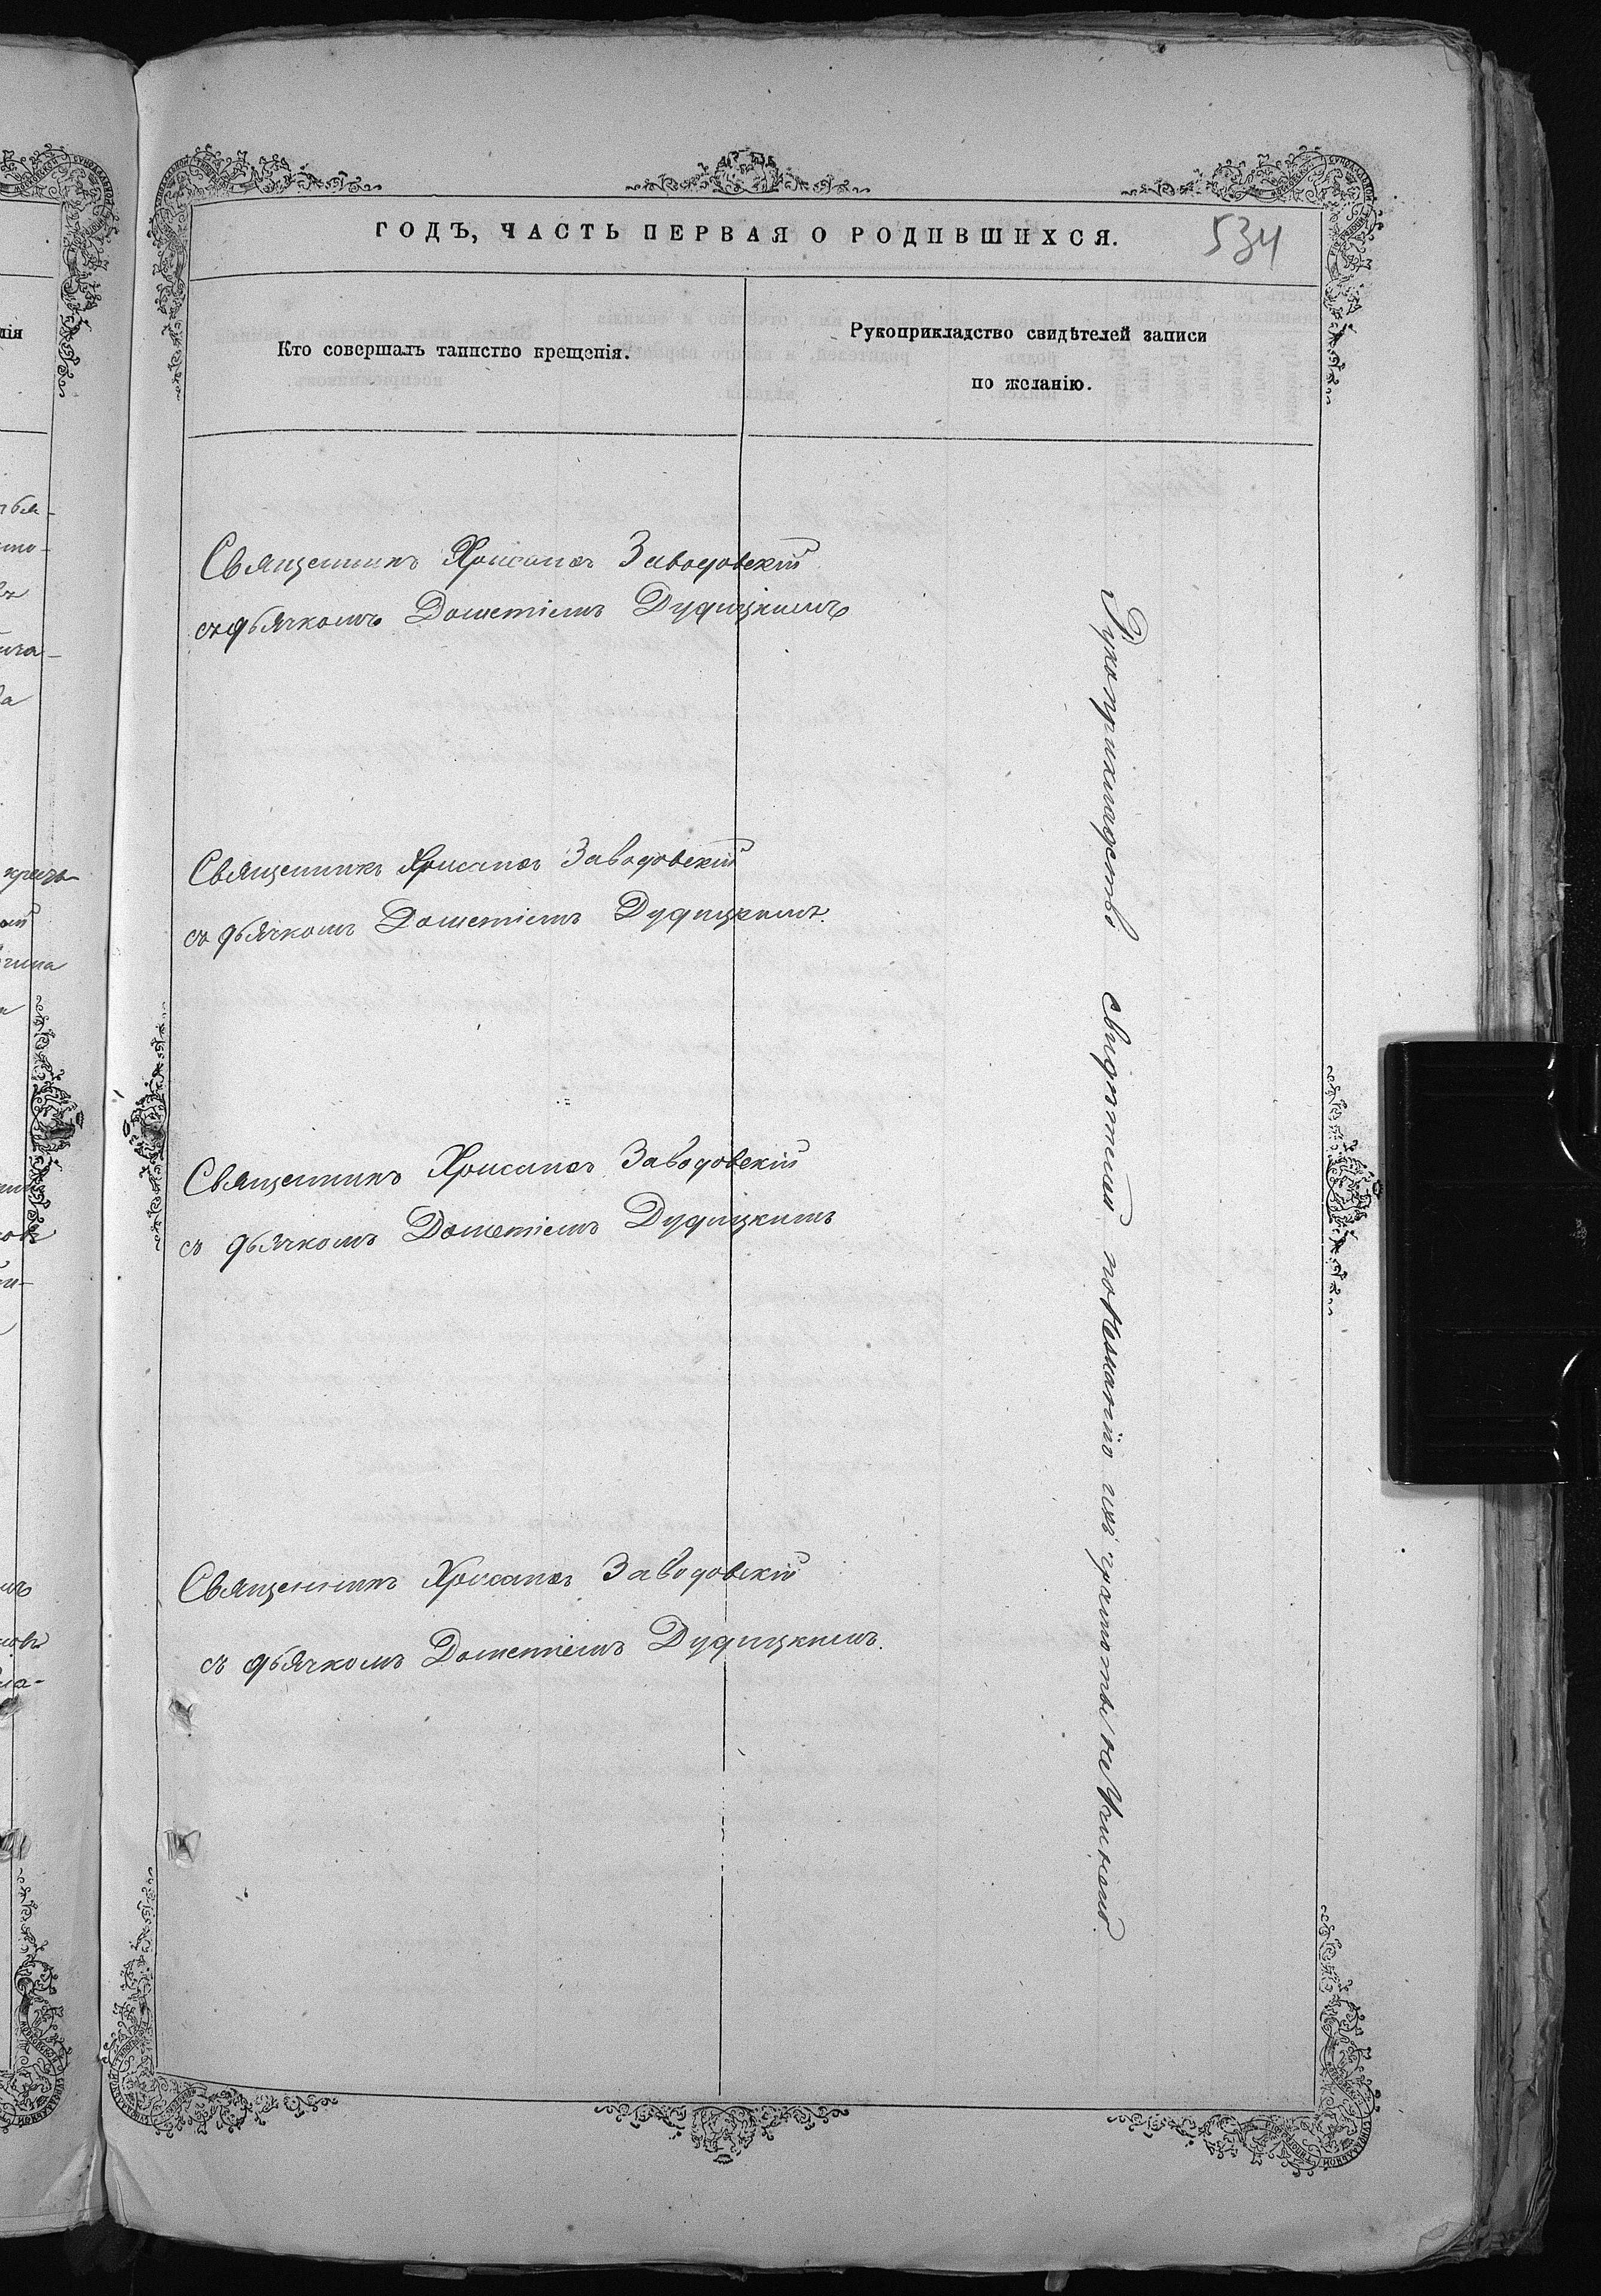 ГОДЪ, ЧАСТЬ ПЕРВАЯ О РОДИВШИХСЯ.
534
Кто совершалъ таинство крещенія.
Рукоприкладство свидѣтелей записи
по желанію.
Священникъ Хрисанѳъ Заводовскій
съ дьячкомъ Дометіемъ Дудицкимъ
Священникъ Хрисанѳъ Заводовскій
съ дьячкомъ Дометіемъ Дудицкимъ.
Священникъ Хрисанѳъ Заводовскій
съ дьячкомъ Дометіемъ Дудицкимъ
Священникъ Хрисанѳъ Заводовскій
съ дьячкомъ Дометіемъ Дудицкимъ.
Рукоприкладство свидѣтелей по незнанію ихъ грамоты не учинено.